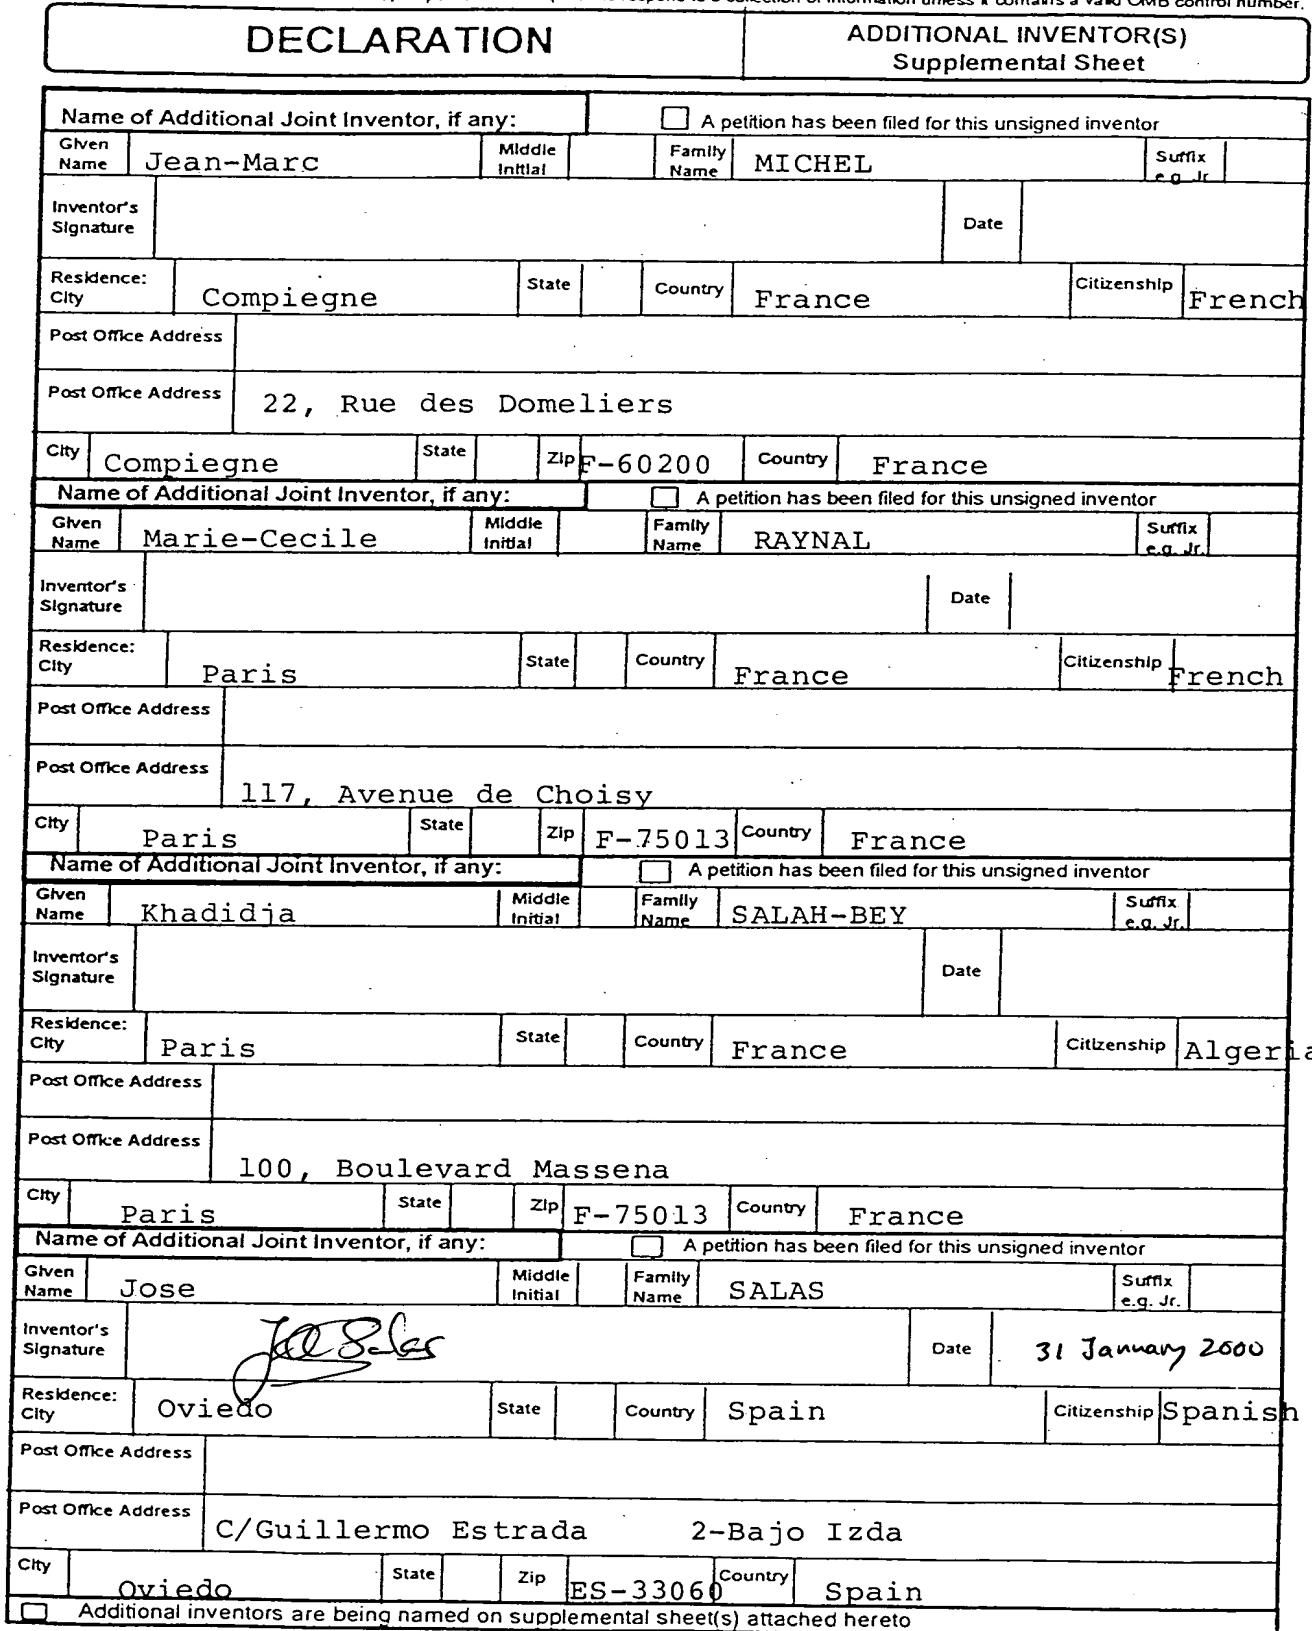 respond to a collection of information unless it contains a valid OMB control number.
DECLARATION
ADDITIONAL INVENTOR(S)
Supplemental Sheet
Name of Additional Joint Inventor, if any:
A petition has been filed for this unsigned inventor
Given Name Jean-Marc Middle Initial Family Name MICHEL Suffix e.g. Jr
Inventor's Signature Date
Residence: City Compiegne State Country France Citizenship French
Post Office Address
Post Office Address 22, Rue des Domeliers
City Compiegne State Zip F-60200 Country France
Name of Additional Joint Inventor, if any:
A petition has been filed for this unsigned inventor
Given Name Marie-Cecile Middle Initial Family Name RAYNAL Suffix e.g. Jr.
Inventor's Signature Date
Residence: City Paris State Country France Citizenship French
Post Office Address
Post Office Address 117, Avenue de Choisy
City Paris State Zip F-75013 Country France
Name of Additional Joint Inventor, if any:
A petition has been filed for this unsigned inventor
Given Name Khadidja Middle Initial Family Name SALAH-BEY Suffix e.g. Jr.
Inventor's Signature Date
Residence: City Paris State Country France Citizenship Algeria
Post Office Address
Post Office Address 100, Boulevard Massena
City Paris State Zip F-75013 Country France
Name of Additional Joint Inventor, if any:
A petition has been filed for this unsigned inventor
Given Name Jose Middle Initial Family Name SALAS Suffix e.g. Jr.
Inventor's Signature Date 31 January 2000
Residence: City Oviedo State Country Spain Citizenship Spanish
Post Office Address
Post Office Address C/Guillermo Estrada 2-Bajo Izda
City Oviedo State Zip ES-33060 Country Spain
Additional inventors are being named on supplemental sheet(s) attached hereto